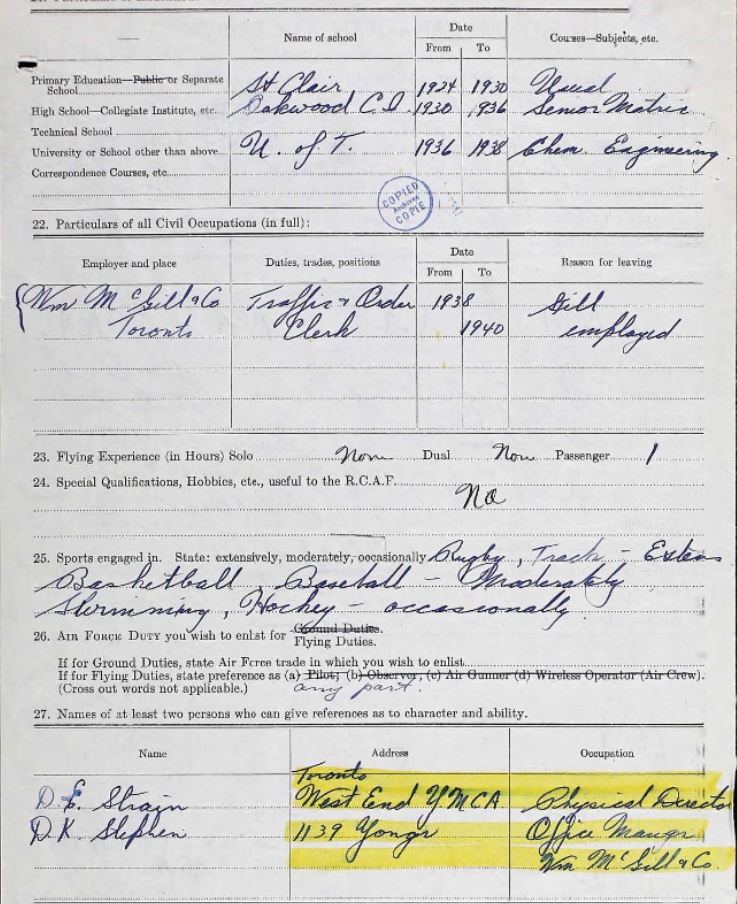 Name of school
Date
From To
Courses—Subjects, etc.
Primary Education—Public or Separate School St Clair 1924 1930 Usual
High School—Collegiate Institute, etc. Oakwood C.I. 1930 1936 Senior Matric
Technical School
University or School other than above U. of T. 1936 1938 Chem. Engineering
Correspondence Courses, etc.
COPIED
Archives
COPIE
22. Particulars of all Civil Occupations (in full):
Employer and place
Duties, trades, positions
Date
From To
Reason for leaving
Wm McGill & Co Traffic & Order 1938 Still
Toronto Clerk 1940 employed
23. Flying Experience (in Hours) Solo None Dual None Passenger 1
24. Special Qualifications, Hobbies, etc., useful to the R.C.A.F.
No
25. Sports engaged in. State: extensively, moderately, occasionally Rugby, Track - Extens
Basketball, Baseball - Moderately
Swimming, Hockey - occasionally
26. AIR FORCE DUTY you wish to enlist for Ground Duties.
Flying Duties.
If for Ground Duties, state Air Force trade in which you wish to enlist
If for Flying Duties, state preference as (a) Pilot; (b) Observer; (c) Air Gunner (d) Wireless Operator (Air Crew).
(Cross out words not applicable.) any part.
27. Names of at least two persons who can give references as to character and ability.
Name Address Occupation
Toronto
D. E. Strain West End YMCA Physical Director
D. K. Stephen 1139 Yonge Office Manager
Wm McGill & Co.